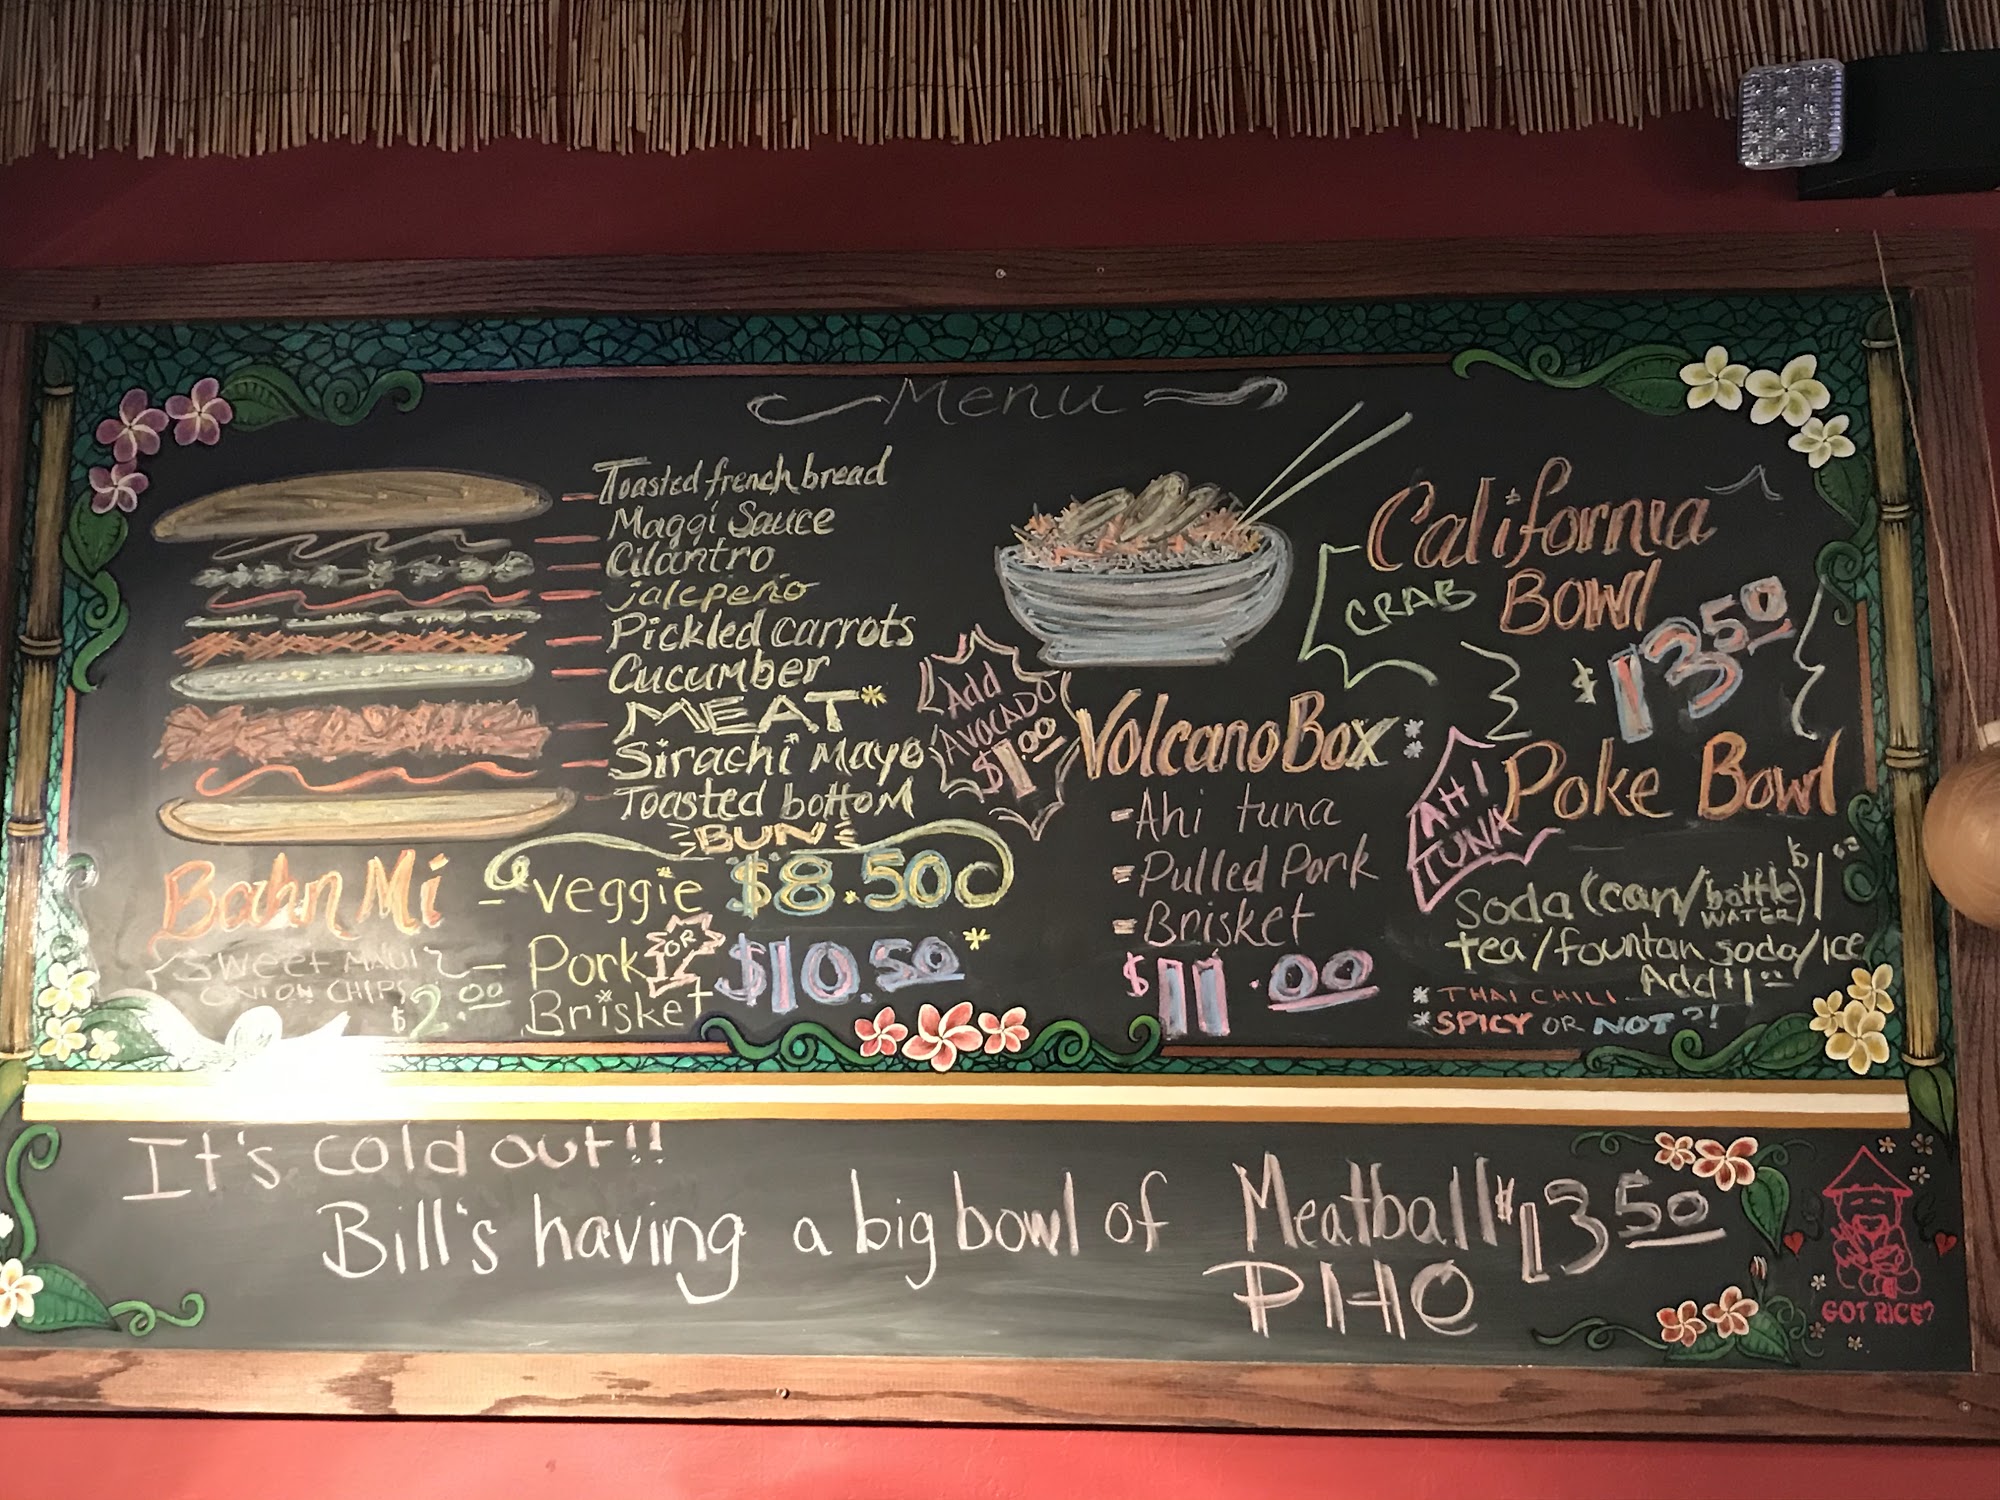 Menu
Toasted french bread
Maggi Sauce
Cilantro
jalepeño
Pickled carrots
Cucumber
MEAT*
Sirachi Mayo
Toasted bottom
BUN
Bahn Mi
veggie $8.50
Pork OR
Brisket
$10.50*
SWEET MAUI
ONION CHIPS
$2.00
Add
AVOCADO
$1.00
Volcano Box
- Ahi tuna
- Pulled Pork
- Brisket
$11.00
California
CRAB BOWl
$13.50
AHI
TUNA
Poke Bowl
Soda (can/bottle)
WATER
tea/fountan soda/ICe
Add $1.00
* THAI CHILI
* SPICY OR NOT?!
It's cold out!!
Bill's having a big bowl of Meatball $13.50
PHO
GOT RICE?